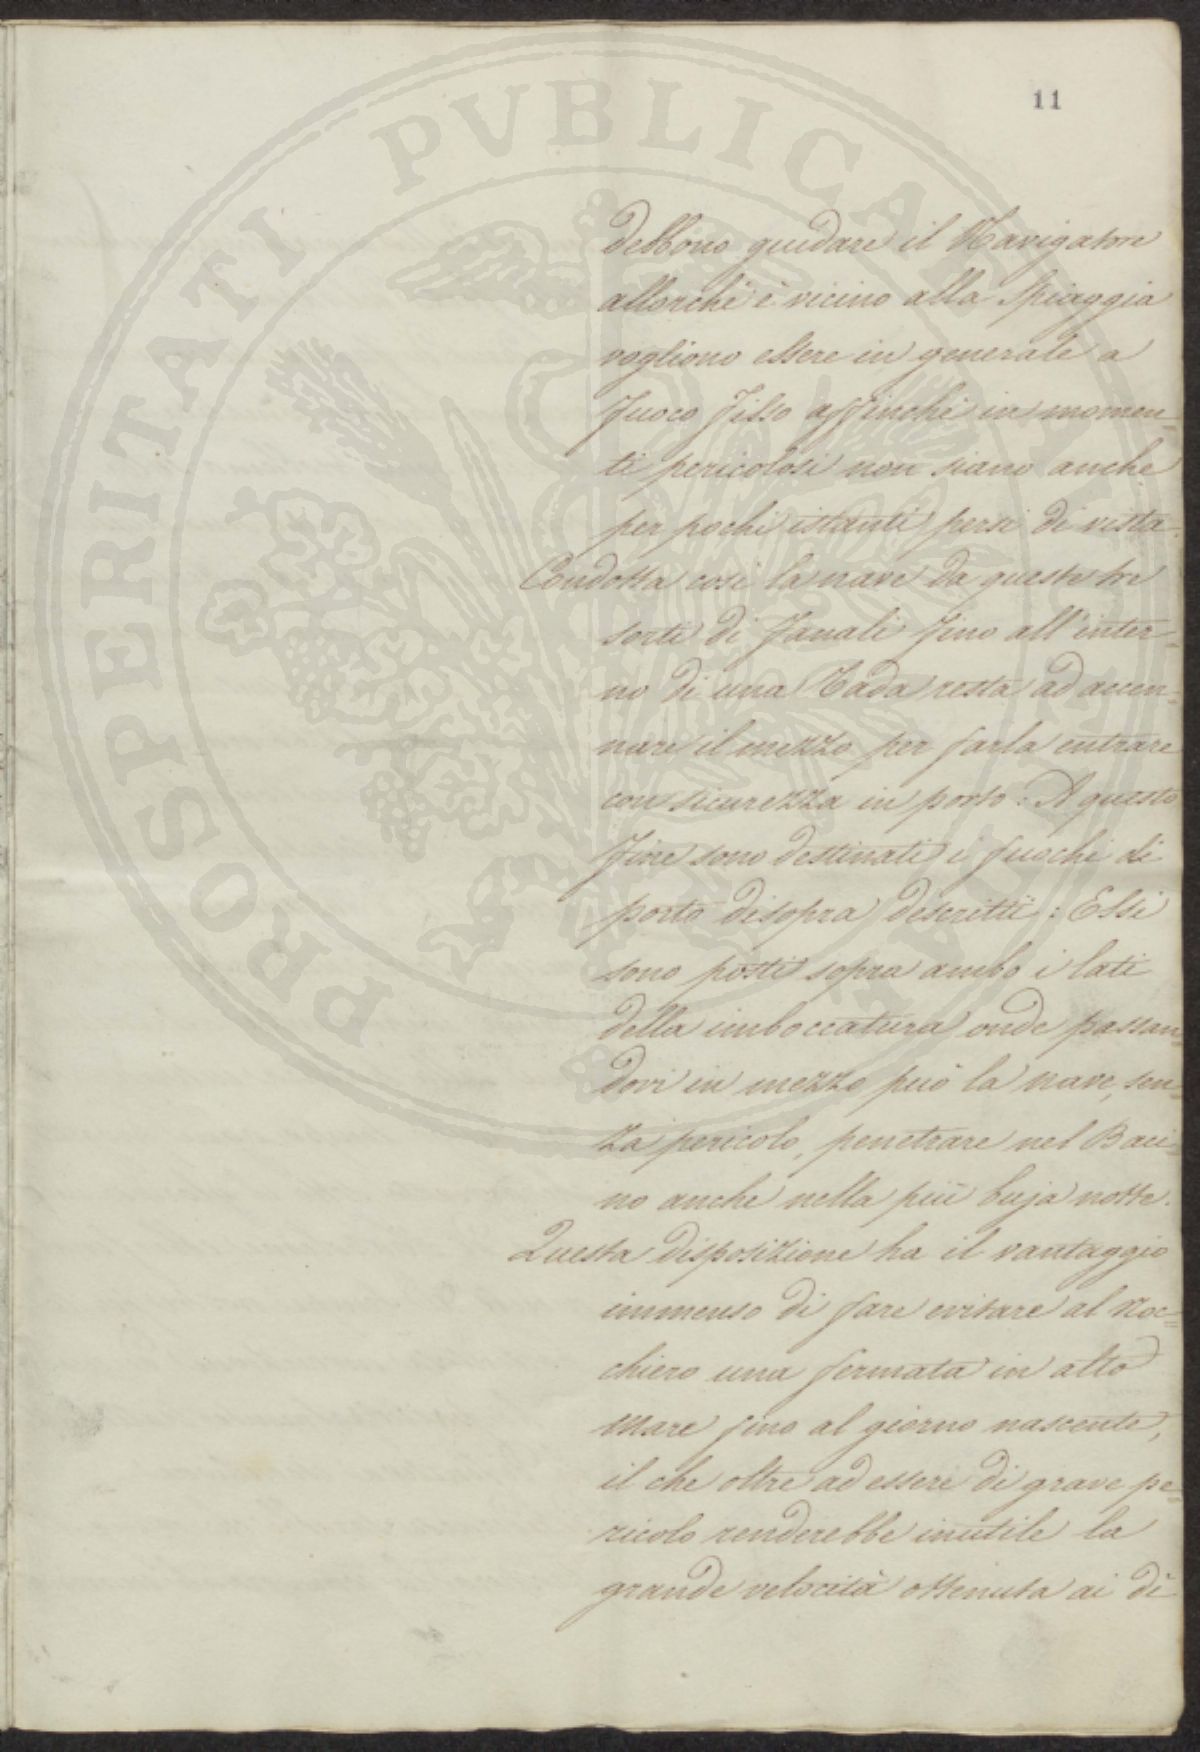 11
PROSPERITATI PVBLICAE
debbono guidare il Navigatore
allorchè è vicino alla Spiaggia
vogliono essere in generale a
fuoco fisso affinchè in momen=
ti pericolosi non siano anche
per pochi istanti persi di vista.
Condotta così la nave da queste tre
sorti di fanali fino all'inter=
no di una Rada resta ad accen=
nare il mezzo per farla entrare
con sicurezza in porto: A questo
fine sono destinati i fuochi di
porto disopra descritti: Essi
sono posti sopra ambo i lati
della imboccatura onde passan=
dovi in mezzo può la nave, sen=
za pericolo, penetrare nel Baci=
no anche nella più buja notte.
Questa disposizione ha il vantaggio
immenso di fare evitare al Noc=
chiero una fermata in alto
mare fino al giorno nascente,
il che oltre ad essere di grave pe=
ricolo renderebbe inutile la
grande velocità ottenuta ai dì